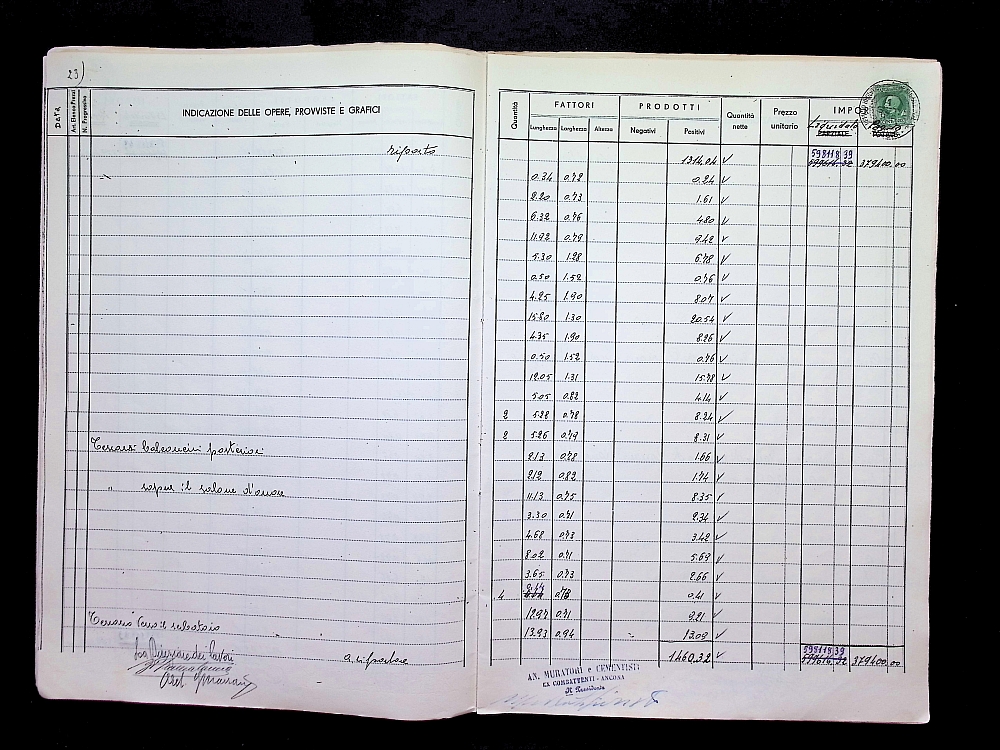 23)
DATA
N. Progressivo
INDICAZIONE DELLE OPERE, PROVVISTE E GRAFICI
Quantità
FATTORI
PRODOTTI
Quantità nette
Prezzo unitario
IMPO
Lunghezza Larghezza Altezza
Negativi Positivi
Liquidato
riporto
1314.04 ✓ 598118,39
379400.00
0.34 0.72 0.24 ✓
2.20 0.73 1.61 ✓
6.32 0.76 4.80 ✓
11.92 0.79 9.42 ✓
5.30 1.28 6.78 ✓
0.50 1.52 0.76 ✓
4.25 1.90 8.07 ✓
15.80 1.30 20.54 ✓
4.35 1.90 8.26 ✓
0.50 1.52 0.76 ✓
12.05 1.31 15.78 ✓
5.05 0.82 4.14 ✓
2 5.28 0.78 8.24 ✓
2 5.26 0.79 8.31 ✓
Terrazzi balconcini posteriori 2.13 0.78 1.66 ✓
2.12 0.82 1.74 ✓
" sopra il salone d'onore 11.13 0.75 8.35 ✓
3.30 0.71 2.34 ✓
4.68 0.73 3.42 ✓
8.02 0.71 5.69 ✓
3.65 0.73 2.66 ✓
4 0.41 ✓
12.97 0.71 9.21 ✓
Terrazzo 13.93 0.94 13.09 ✓
a riportare 1460.32 ✓ 598118,39
379400.00
AN. MURATORI e CEMENTISTI
EX COMBATTENTI - ANCONA
Il Presidente